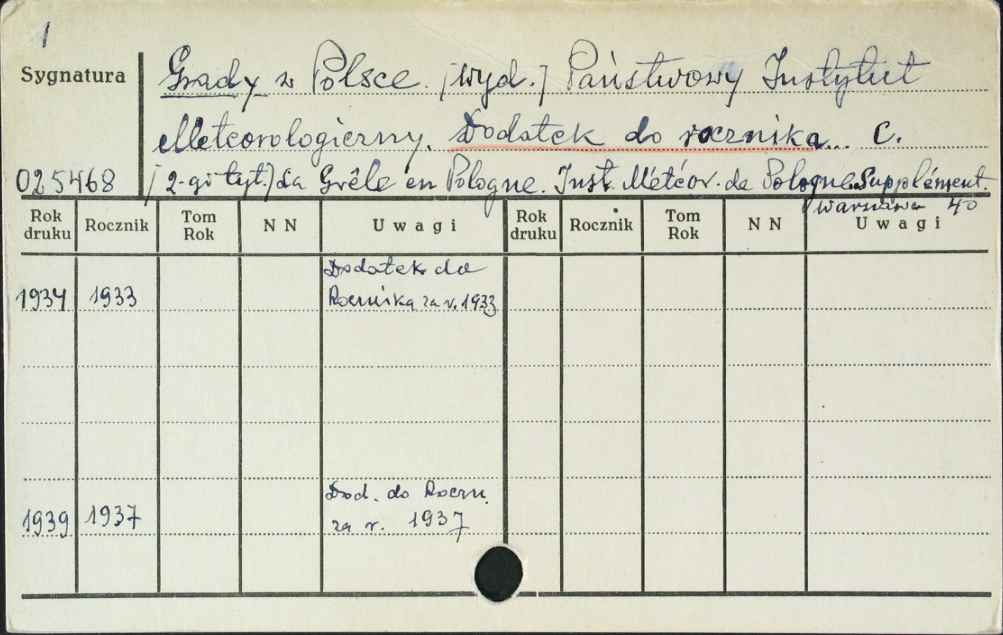 1
Sygnatura
Grady w Polsce. [wyd.] Państwowy Instytut
Meteorologiczny. Dodatek do rocznika... C.
025468
[2-gi tyt.] La Grêle en Pologne. Inst. Météor. de Pologne. Supplément.
Warszawa 40
Rok druku Rocznik Tom Rok N N Uwagi Rok druku Rocznik Tom Rok N N Uwagi
Dodatek do
1934 1933 Rocznika za r. 1933
Dod. do Roczn.
1939 1937 za r. 1937